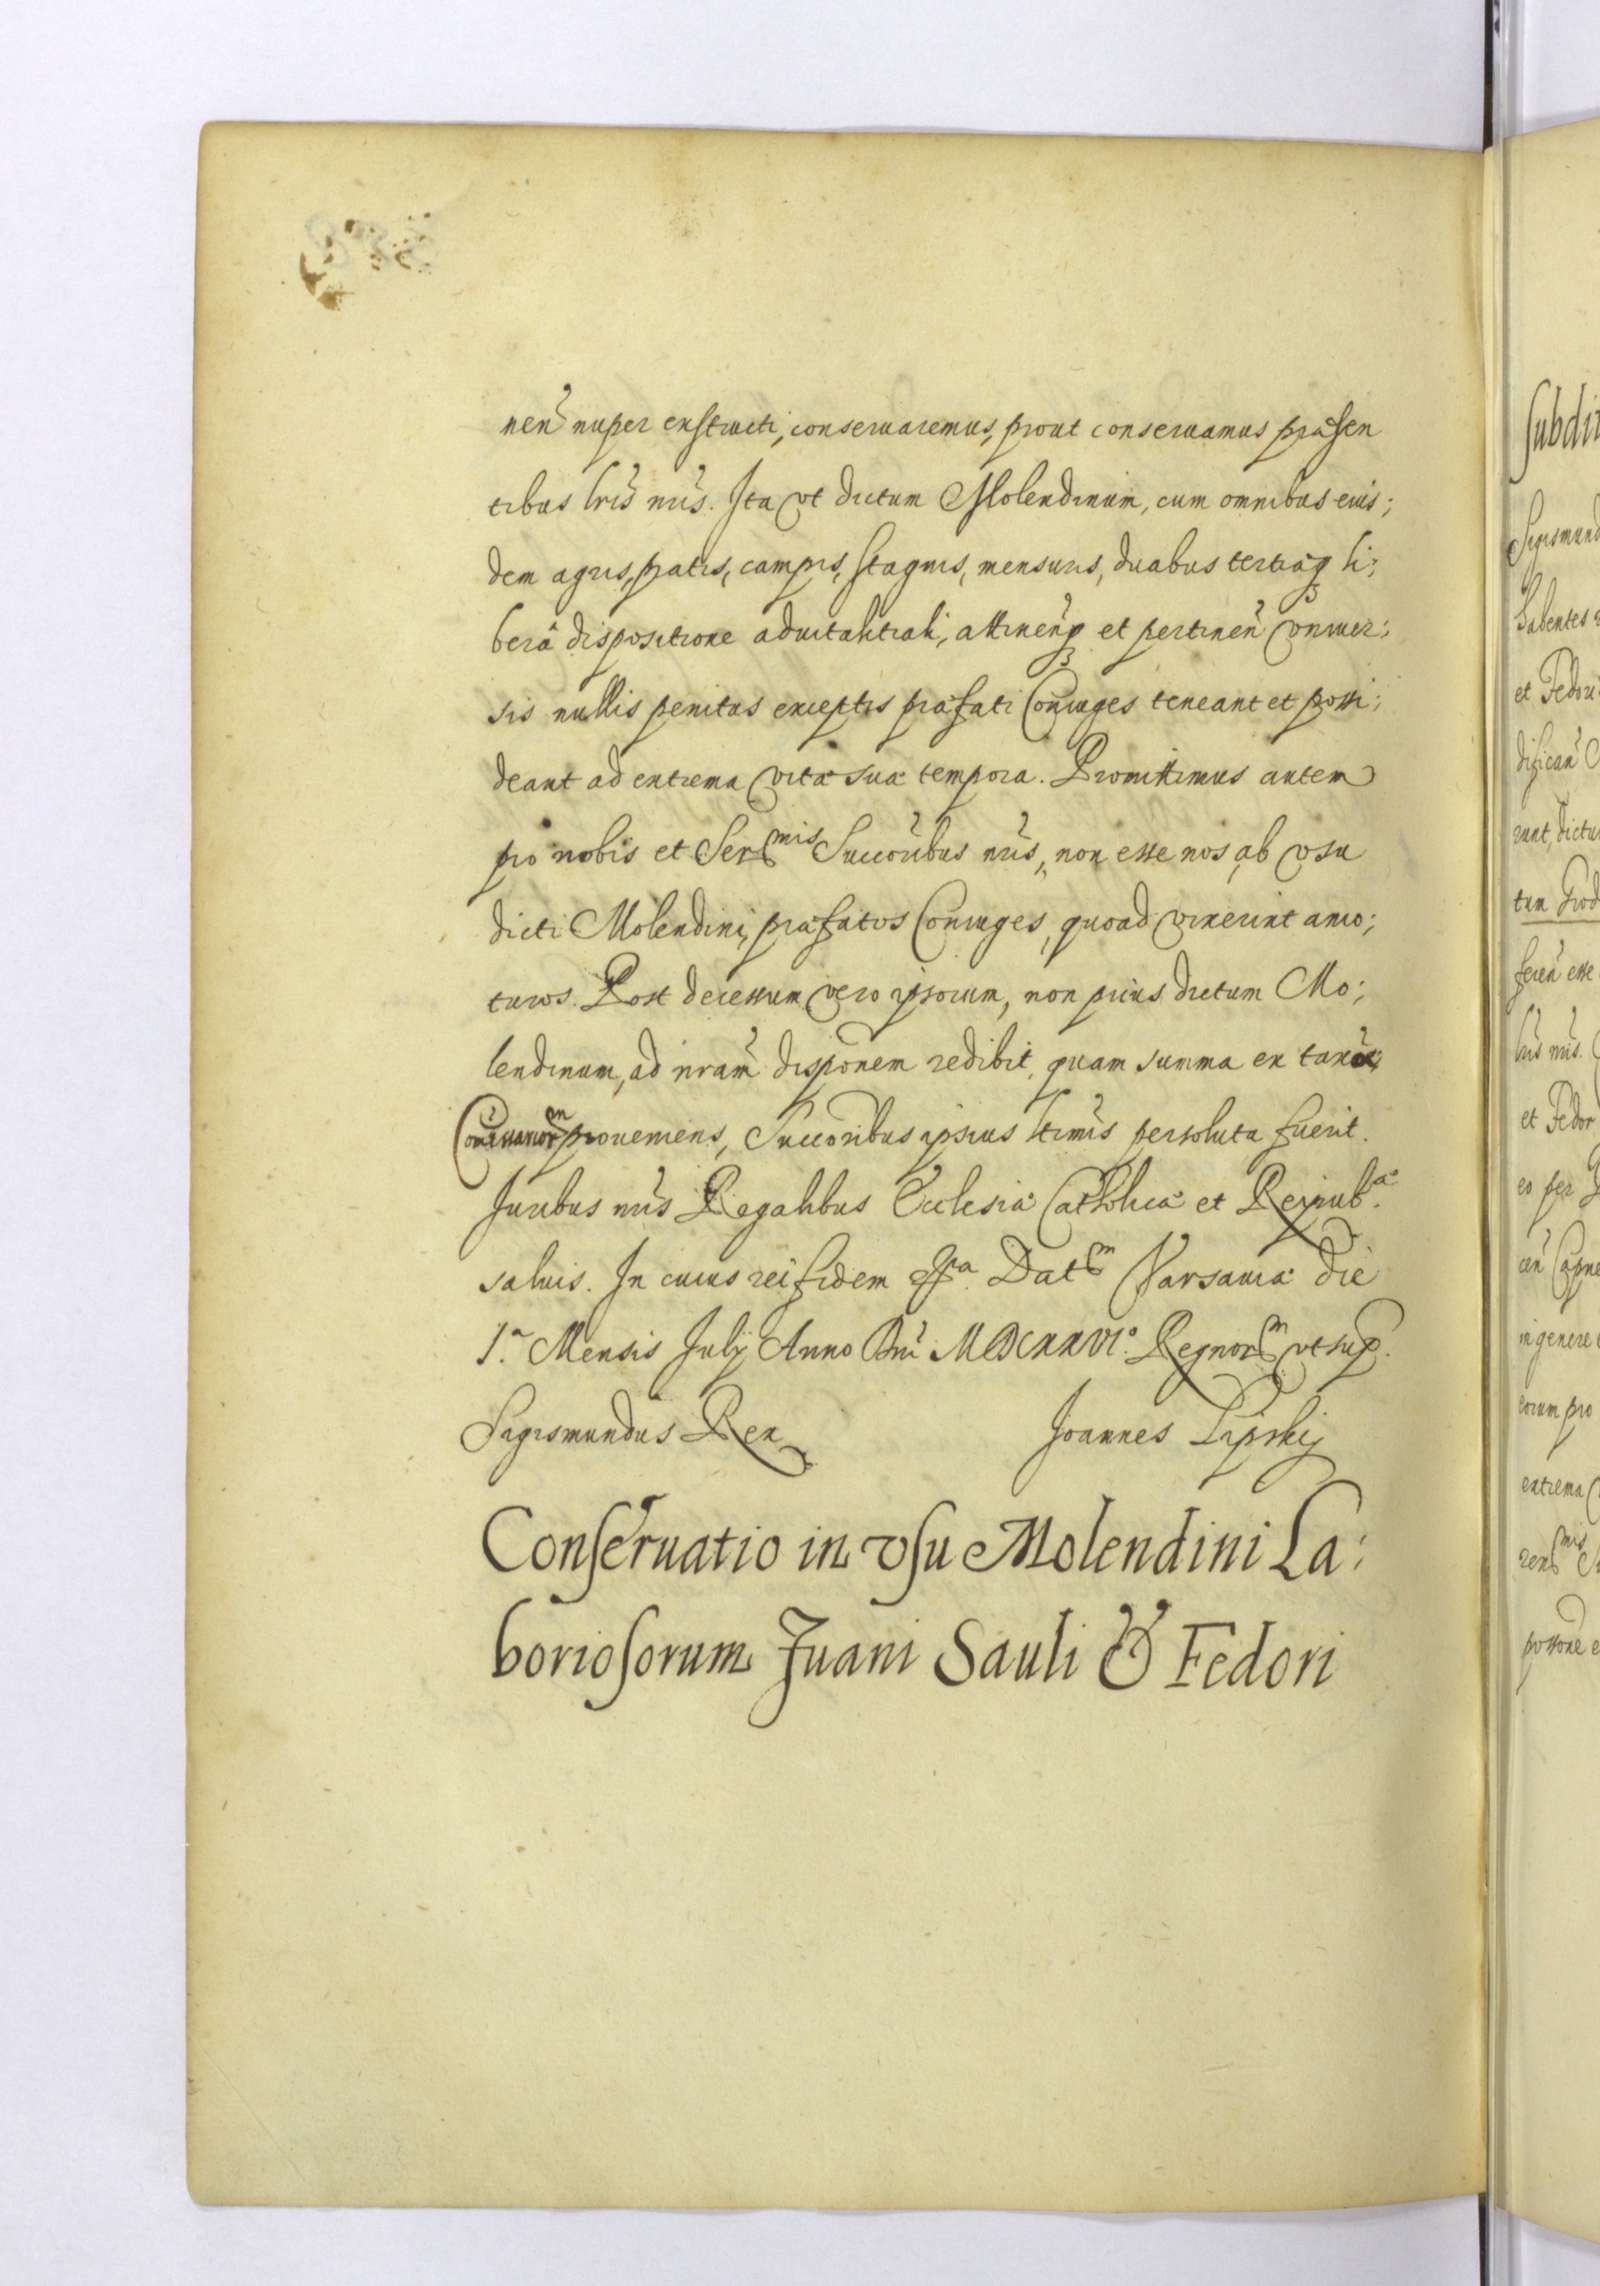 nen̄ nuper exstructi, conseruaremus, prout conseruamus præsen
tibus lrīs nrīs. Ita vt dictum Molendinum, cum omnibus eius;
dem agris, pratis, campis, stagnis, mensuris, duabus tertiaq3 li;
berâ dispositione aduitalitiali, attinen̄q3 et pertinen̄ vniuer;
sis nullis penitus exceptis præfati Coniuges teneant et possi;
deant ad extrema vitæ suæ tempora. Promittimus autem
pro nobis et Sermis Succōribus nrīs, non esse nos, ab vsu
dicti Molendini, præfatos Coniuges, quoad vixerint amo;
turos. Post decessum vero ipsorum, non prius dictum Mo;
lendinum, ad nram̄ dispōnem redibit, quam summa ex taxa
Com̄issariorm proueniens, Succōribus ipsius ltimīs persoluta fuerit.
Juribus nrīs Regalibus Ecclesiæ Catholicæ et Reipubæ.
saluis. In cuius rei fidem &ra. Datm Varsauiæ die
1.a Mensis Julij Anno Dnī MDCXXVIo. Regnorm vt sup.
Sigismundus Rex
Joannes Lipskij
Conseruatio in vsu Molendini La;
boriosorum Iuani Sauli & Fedori
subdit
Sigismund
habentes
et Fedori
difican̄
runt, dictu
tum Grod
feren̄ esse
lrīs nrīs.
et Fedor
eo per
in genere
eorum pro
extrema